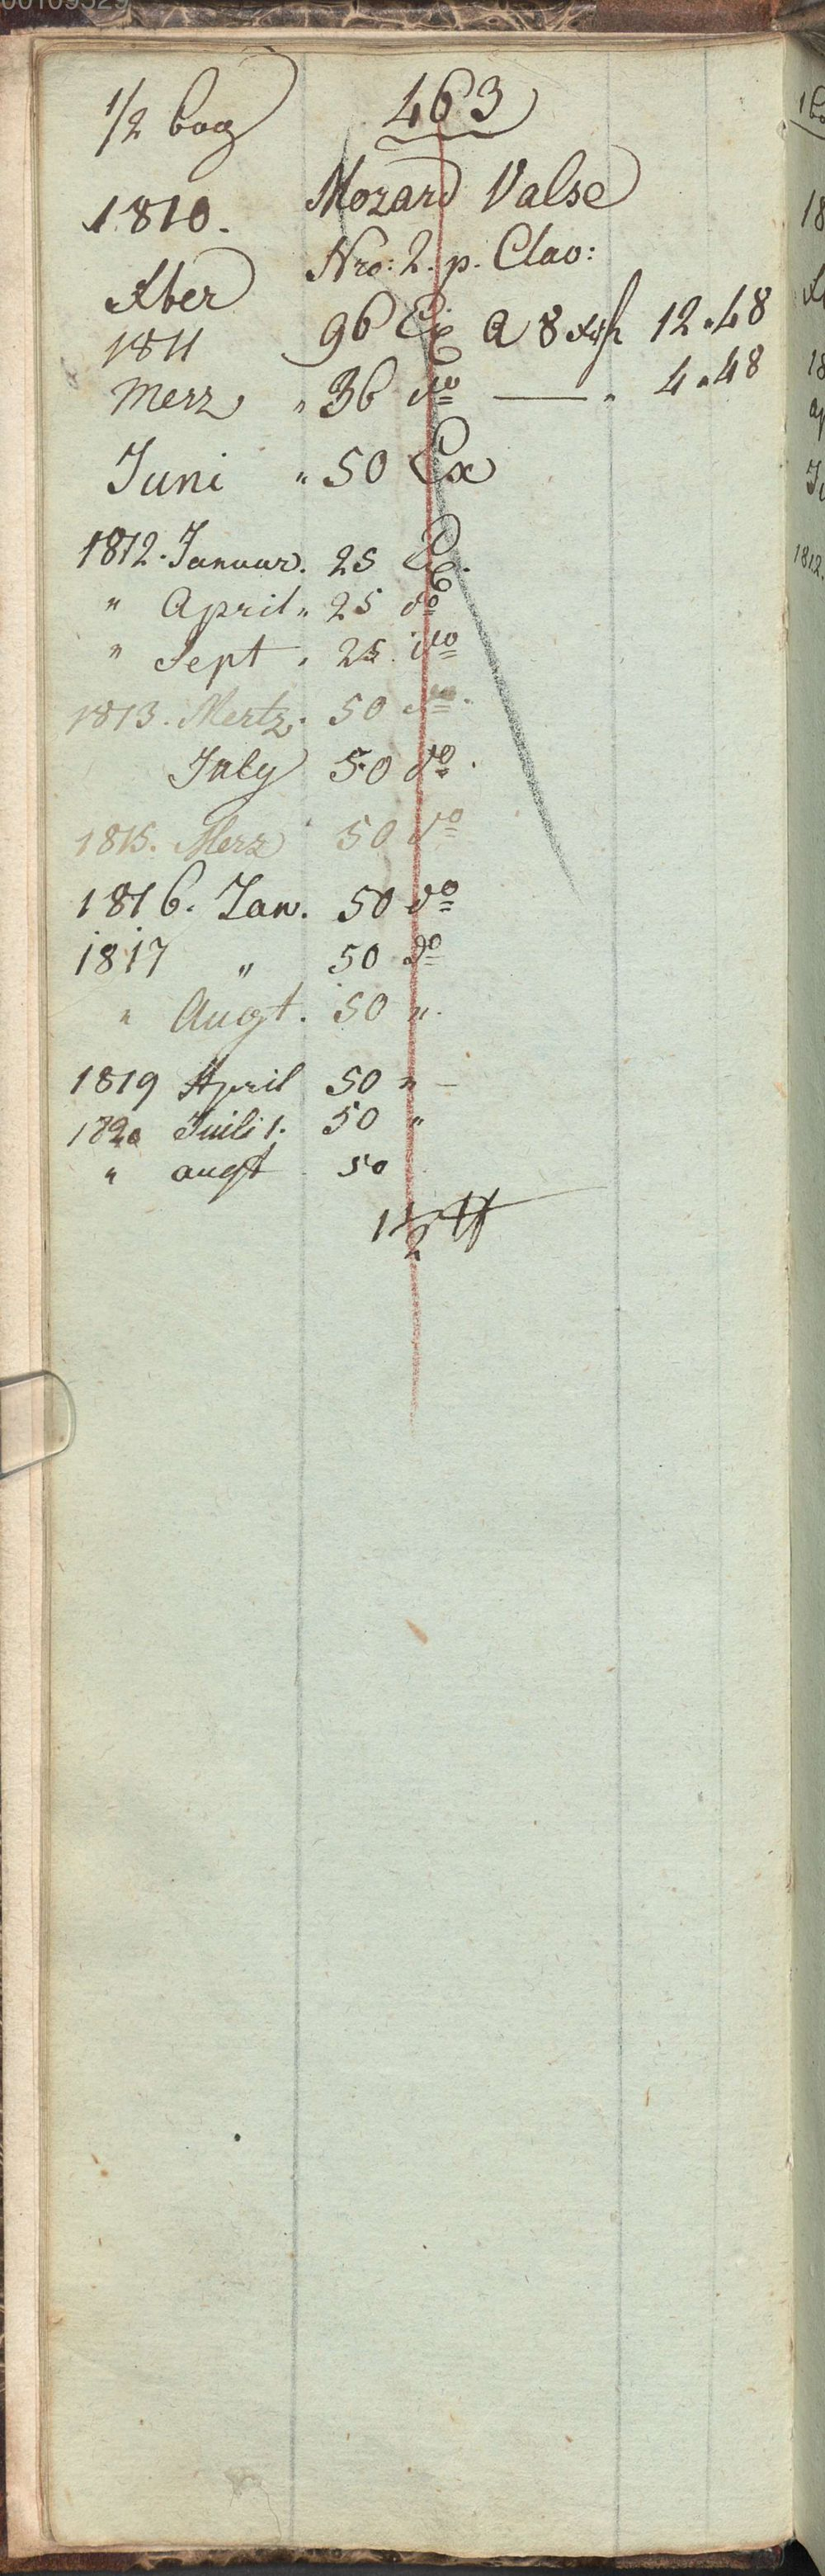 00109529
1/2 bog 463
1810. Mozard Valse
Nro: 2. p. Clav:
Xber
96 Ex a 8 xr 12 " 48
1811
Merz " 36 do — " 4 " 48
Juni " 50 Ex
1812. Januar. 25 Ex.
" April " 25 do
" Sept " 25 do
1813. Mertz. 50 do.
July 50 do.
1815. Merz 50 do
1816. Jan. 50 do
1817 " 50 do
" Augt. 50 "
1819 April 50 " —
1820 Juili 1. 50 "
" augt 50
1 1/2